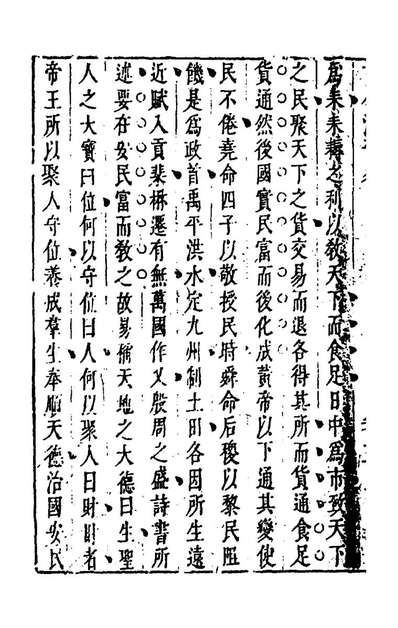 為耒耜耨之利以敎天下而食足日中為市致天下
之民聚天下之貨交易而退各得其所而貨通食足
貨通然後國實民富而後化成黃帝以下通其變使
民不倦堯命四子以敬授民時舜命后稷以黎民阻
饑是為政首禹平洪水定九州制土田各因所生遠
近賦入貢棐楙遷有無萬國作乂殷周之盛詩書所
述要在安民富而敎之故易稱天地之大德曰生聖
人之大寶曰位何以守位曰人何以聚人曰財財者
帝王所以聚人守位養成羣生奉順天德治國安民